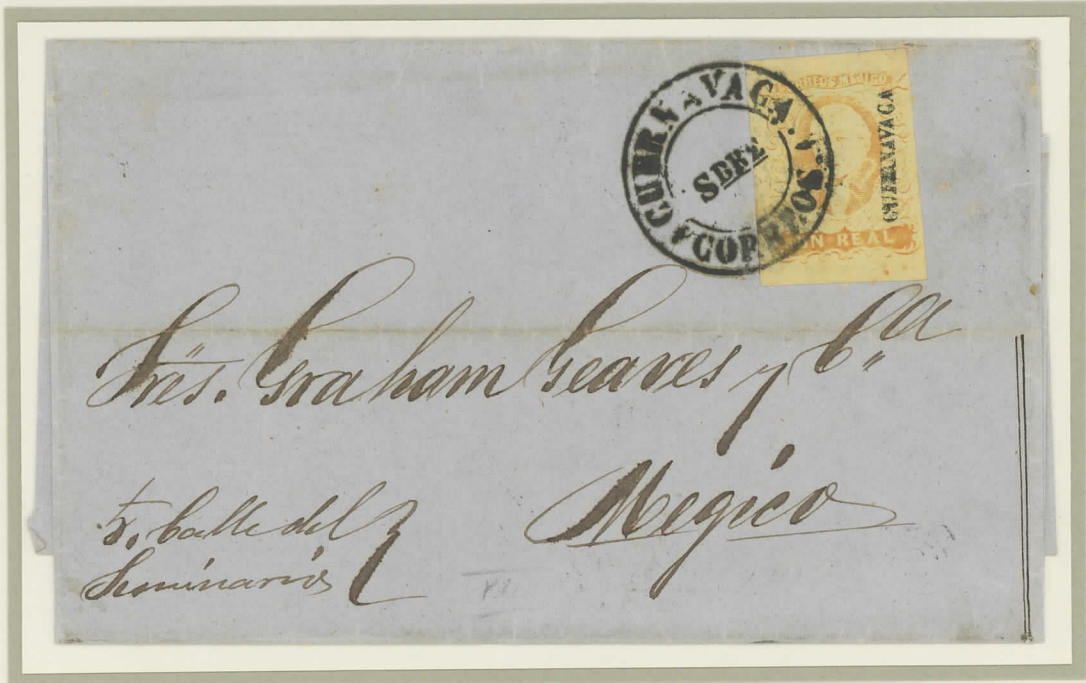 CUERNAVACA.
SBRE
CORREOS
CORREOS MEJICO
CUERNAVACA
UN REAL
Sres. Graham Geaves y Ca
Megico
Calle del
Seminario